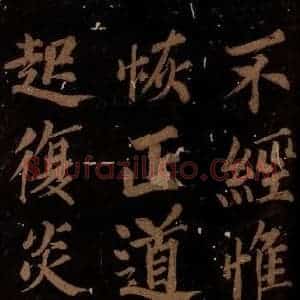 不經惟
恢正道
起復炎
shufaziliao.com